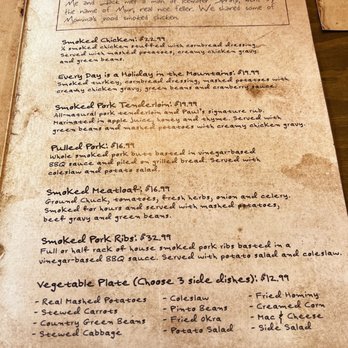 Me and Jack met a man at Rewater
the name of Man, real nice feller. We shared some of
Momma's good smoked chicken.
Smoked Chicken: $22.99
½ smoked chicken stuffed with cornbread dressing.
Served with mashed potatoes, creamy chicken gravy,
and green beans.
Every Day is a Holiday in the Mountains: $19.99
Smoked turkey, cornbread dressing, mashed potatoes with
creamy chicken gravy, green beans and cranberry sauce.
Smoked Pork Tenderloin: $19.99
All-natural pork tenderloin and Paul's signature rub.
Marinated in apple juice, honey and thyme. Served with
green beans and mashed potatoes with creamy chicken gravy.
Pulled Pork: $16.99
Whole smoked pork butt basted in vinegar-based
BBQ sauce and piled on grilled bread. Served with
coleslaw and potato salad.
Smoked Meatloaf: $16.99
Ground Chuck, tomatoes, fresh herbs, onion and celery.
Smoked for hours and served with mashed potatoes,
beef gravy and green beans.
Smoked Pork Ribs: $32.99
Full or half rack of house smoked pork ribs basted in a
vinegar-based BBQ sauce. Served with potato salad and coleslaw.
Vegetable Plate (Choose 3 side dishes): $12.99
- Real Mashed Potatoes
- Stewed Carrots
- Country Green Beans
- Stewed Cabbage
- Coleslaw
- Pinto Beans
- Fried Okra
- Potato Salad
- Fried Hominy
- Creamed Corn
- Mac & Cheese
- Side Salad